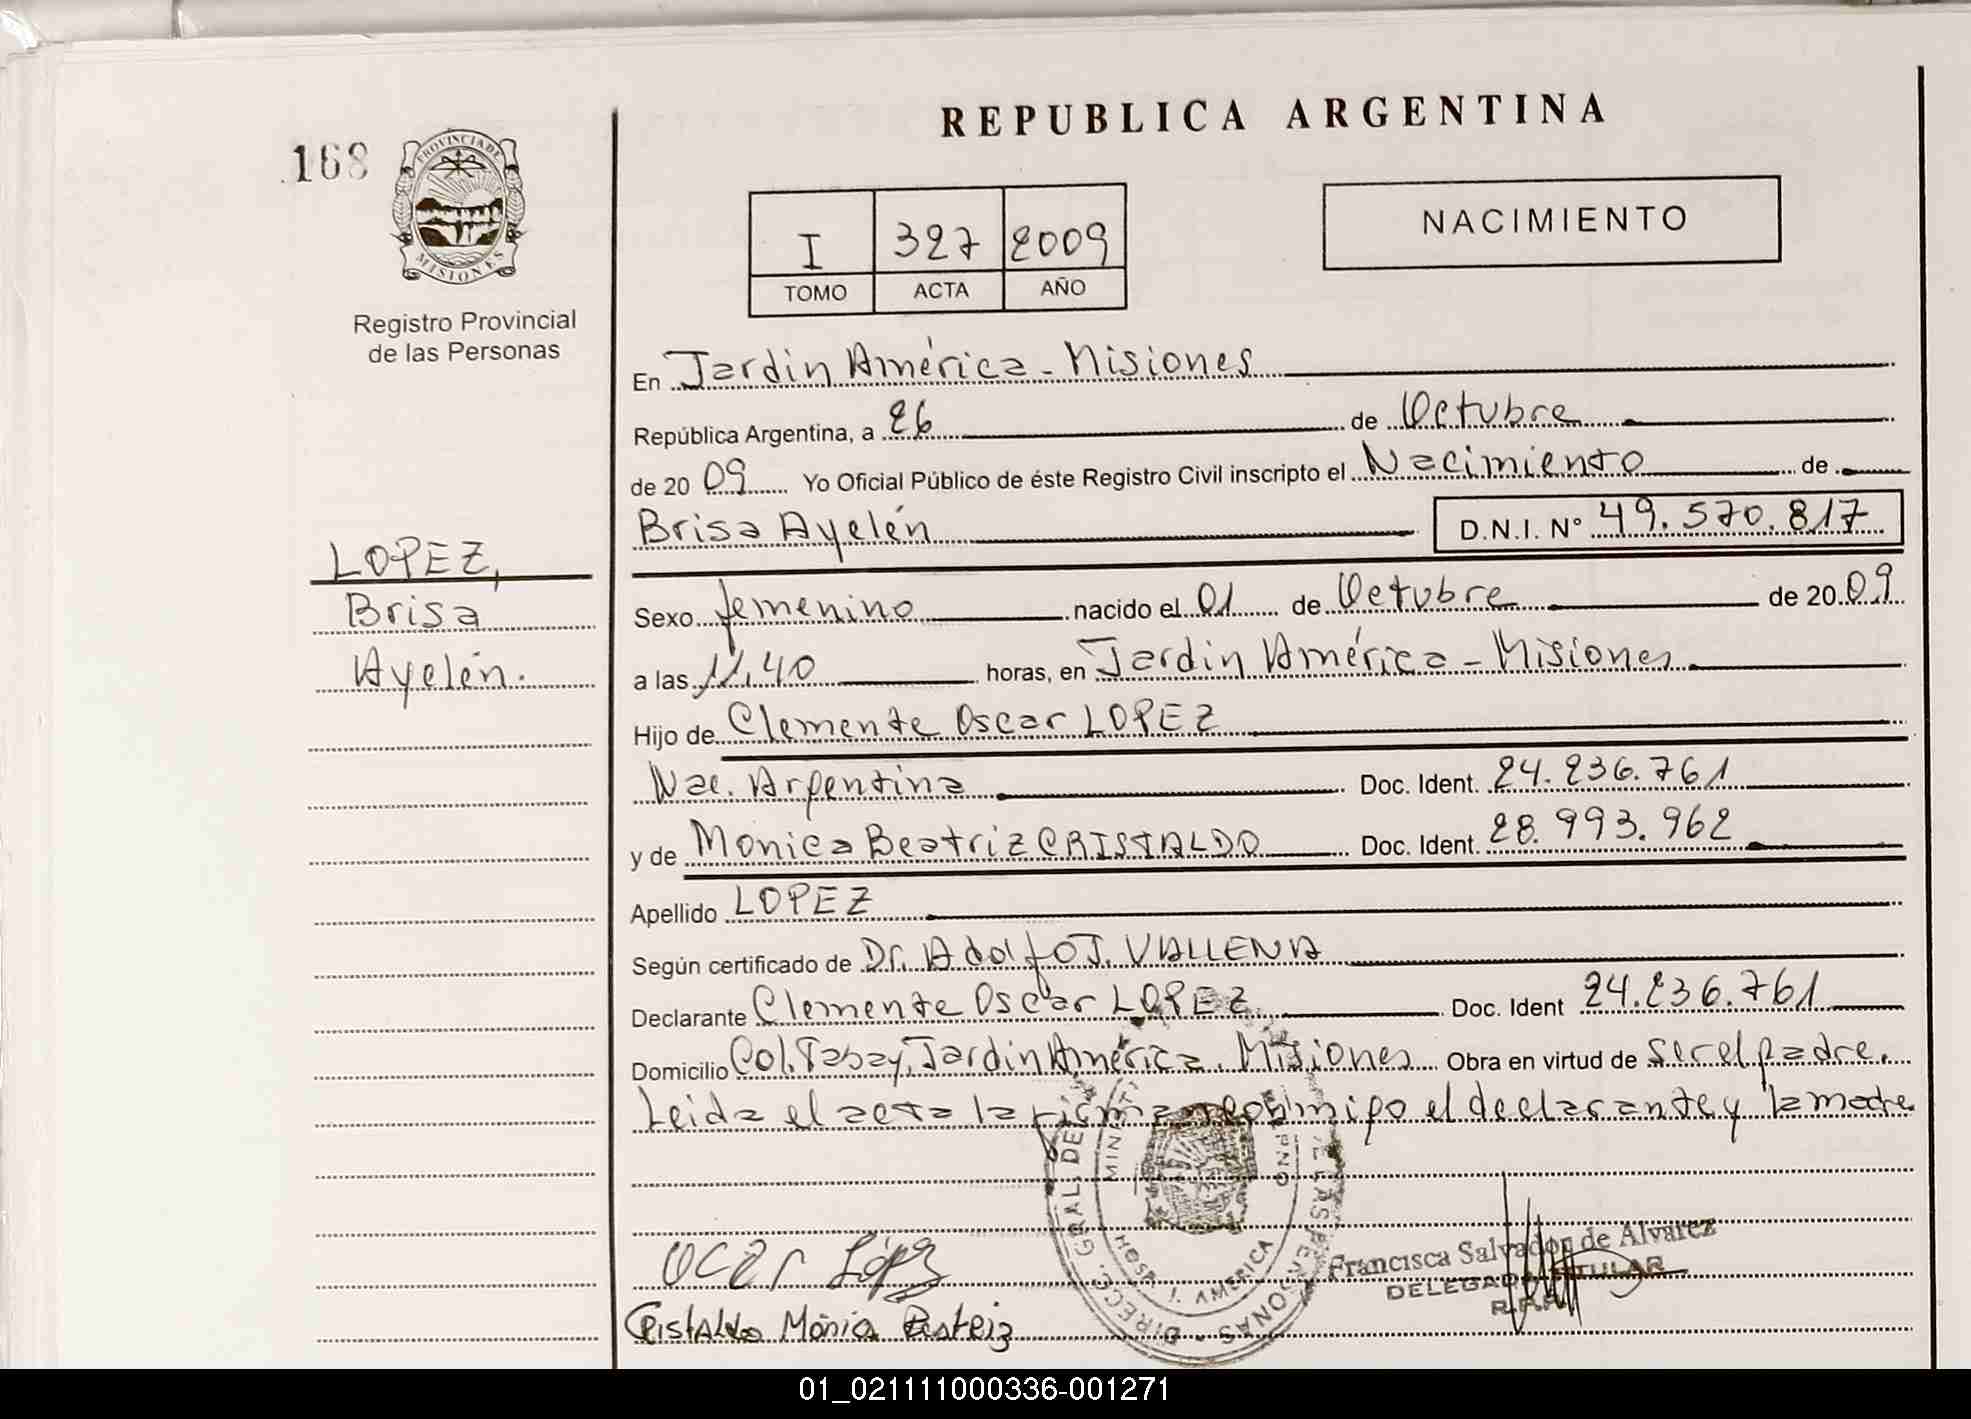 REPUBLICA ARGENTINA
168
PROVINCIA DE
MISIONES
Registro Provincial
de las Personas
I 327 2009
TOMO ACTA AÑO
NACIMIENTO
LOPEZ,
Brisa
Ayelén.
En Jardin América - Misiones
República Argentina, a 26 de Octubre
de 20 09 Yo Oficial Público de éste Registro Civil inscripto el Nacimiento de
Brisa Ayelén D.N.I. N° 49.570.817
Sexo femenino nacido el 01 de Octubre de 20 09
a las 11,40 horas, en Jardin América - Misiones
Hijo de Clemente Oscar LOPEZ
Nac. Argentina Doc. Ident. 24.236.761
y de Mónica Beatriz CRISTALDO Doc. Ident. 28.993.962
Apellido LOPEZ
Según certificado de Dr. Adolfo J. VALLENA
Declarante Clemente Oscar LOPEZ Doc. Ident 24.236.761
Domicilio Col. Tabay, Jardin América. Misiones Obra en virtud de ser el padre.
Leida el acta la firman conmigo el declarante y la madre
DIRECC. GRAL. DE LAS PERSONAS
HOSP. J. AMERICA
Ocar López
Francisca Salvador de Alvarez
DELEGADA TITULAR
R.P.P.
Cristaldo Mónica Beatriz
01_021111000336-001271